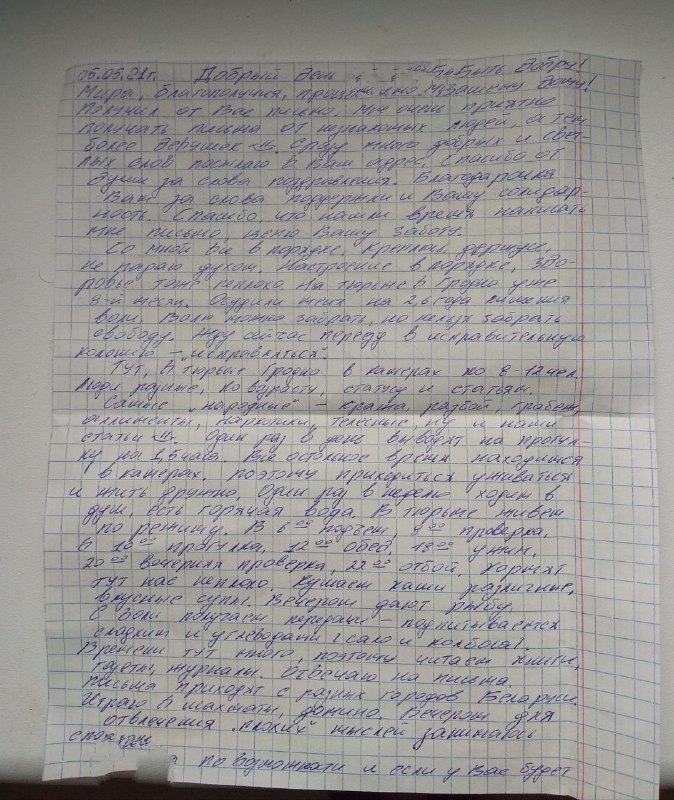 05.05.21г. Добрый день Быть Добру!
Мира, благополучия, Вашему дому!
Получил от Вас письмо. Мне очень приятно
получать письма от незнакомых людей, а тем
более девушек. Сразу много добрых и свет-
лых слов посылаю в Ваш адрес. Спасибо от
души за слова поздравления. Благодарочка
Вам за слова поддержки и Вашу солидар-
ность. Спасибо, что нашли время написать
мне письмо, ценю Вашу заботу.
Со мной все в порядке. Креплюсь, держусь,
не падаю духом. Настроение в порядке, здо-
ровье тоже неплохо. На тюрьме в Гродно уже
8-й месяц. Осудили меня на 2,6 года лишения
воли. Волю можно забрать, но нельзя забрать
свободу. Жду сейчас переезд в исправительную
колонию - "исправляться".
Тут, в тюрьме Гродно в камерах по 8-12 чел.
Люди разные, по возрасту, статусу и статьям.
Самые "народные" - кража, разбой, грабеж,
аллименты, наркотики, телесные, ну и наши
статьи. Один раз в день выводят на прогул-
ку на 1,5 часа. Все остальное время находимся
в камерах, поэтому приходиться уживаться
и жить дружно. Один раз в неделю ходим в
душ, есть горячая вода. В тюрьме живем
по режиму. В 6⁰⁰ подъем, 8⁰⁰ проверка,
в 10⁰⁰ прогулка, 12⁰⁰ обед, 18⁰⁰ ужин,
20⁰⁰ вечерняя проверка, 22⁰⁰ отбой. Кормят
тут нас неплохо. Кушаем каши различные,
вкусные супы. Вечером дают рыбу.
С воли получаем передачи - подпитываемся
сладким и углеводами (сало и колбаса).
Времени тут много, поэтому читаем книги,
газеты, журналы. Отвечаю на письма.
Письма приходят с разных городов Беларуси.
Играю в шахматы, домино. Вечером для
отвлечения "плохих" мыслей занимаюсь
спортом
по возможности и если у Вас будет